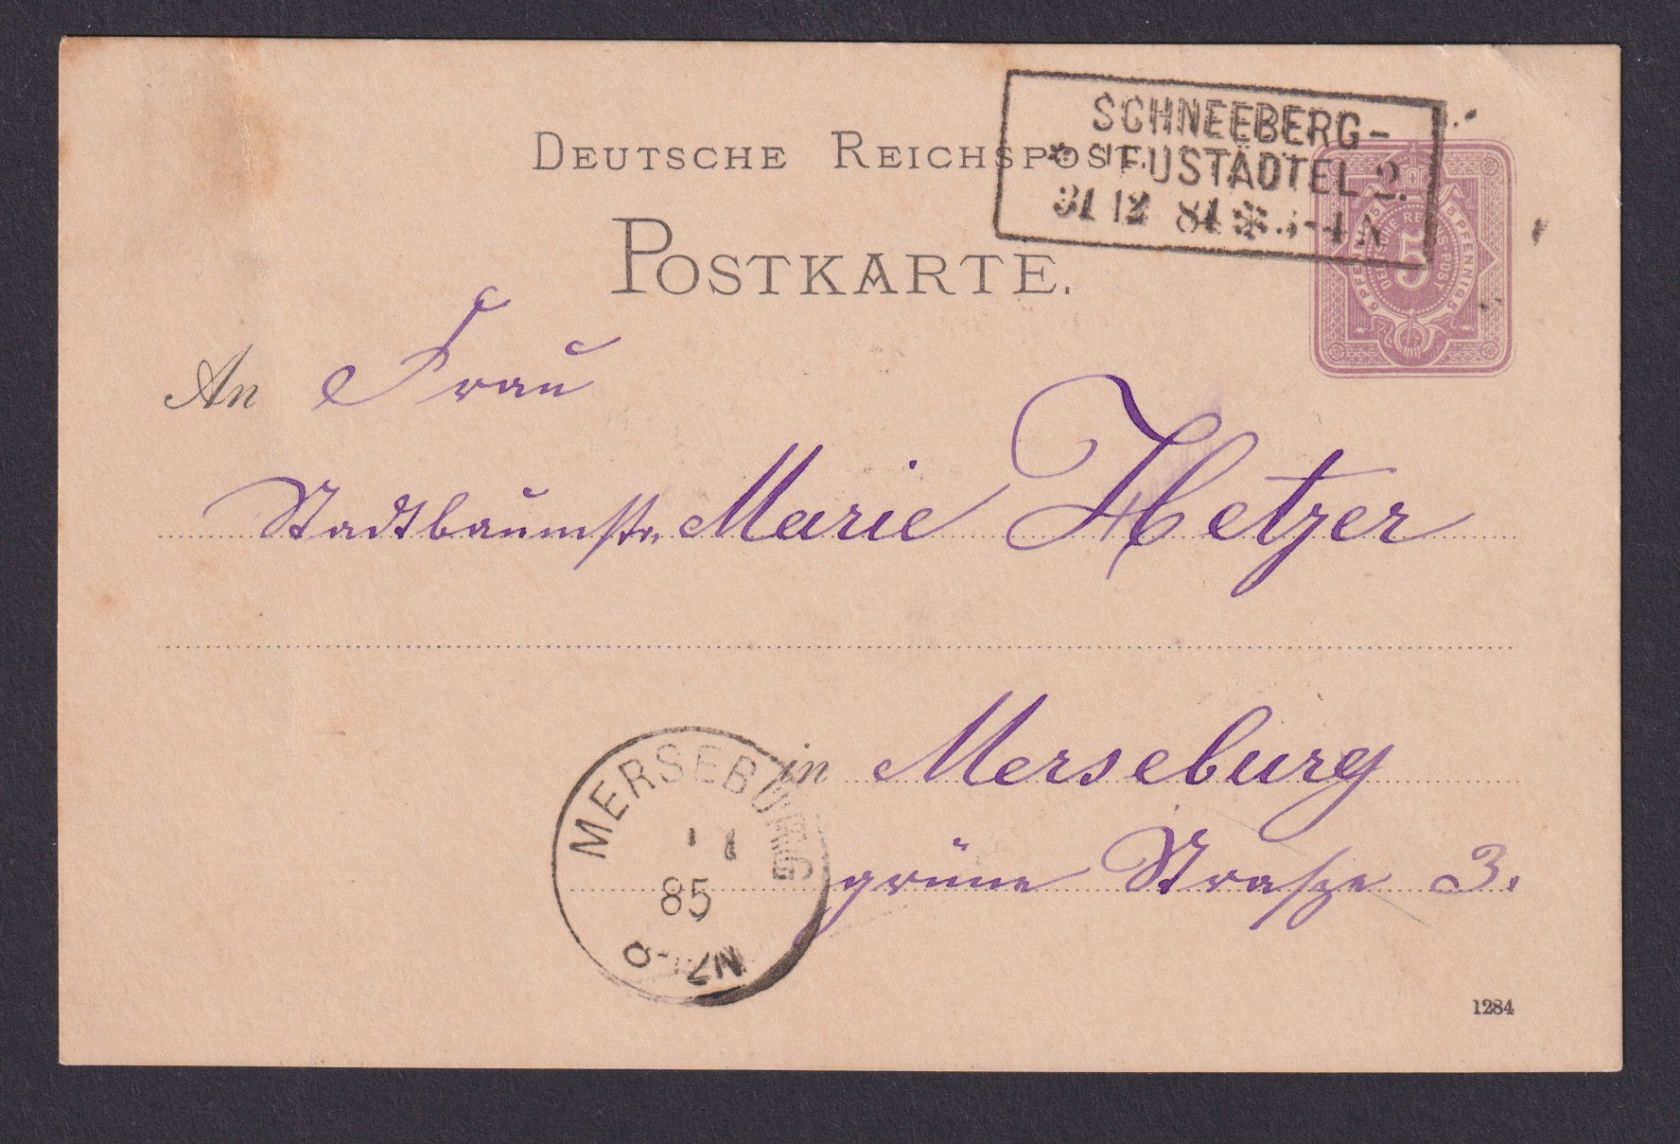 DEUTSCHE REICHSPOST.
POSTKARTE.
SCHNEEBERG-
* NEUSTÄDTEL 2.
31 12 84 * 3-4 N
5 PFENNIG 5
DEUTSCHE REICHS-POST
5
An Frau
Stadtbaumstr. Marie Hetzer
in Merseburg
grüne Straße 3.
MERSEBURG
1 1
85
N
1284